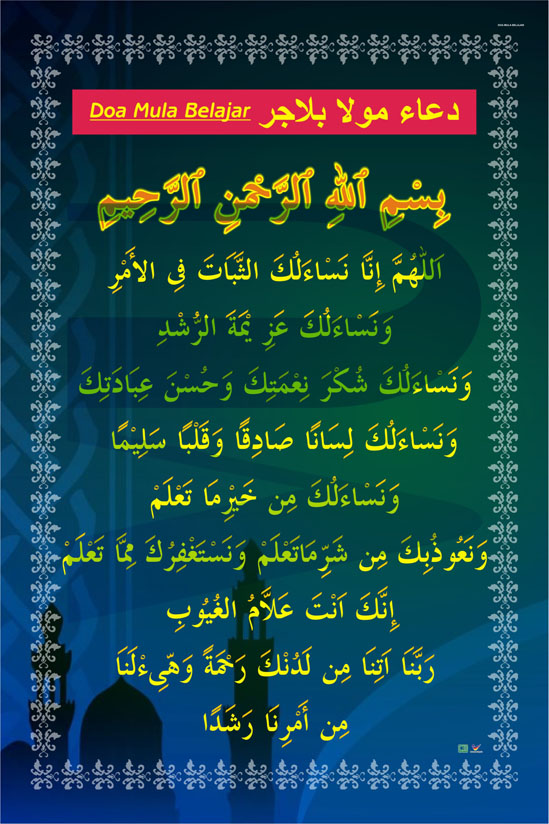 DOA MULA BELAJAR
Doa Mula Belajar دعاء مولا بلاجر
بِسْمِ ٱللَّهِ ٱلرَّحْمَٰنِ ٱلرَّحِيمِ
اَللّٰهُمَّ إِنَّا نَسْاءَلُكَ الثَّبَاتَ فِى الأَمْرِ
وَنَسْاءَلُكَ عَزِ يْمَةَ الرُّشْدِ
وَنَسْاءَلُكَ شُكْرَ نِعْمَتِكَ وَحُسْنَ عِبَادَتِكَ
وَنَسْاءَلُكَ لِسَانًا صَادِقًا وَقَلْبًا سَلِيْمًا
وَنَسْاءَلُكَ مِن خَيْرِمَا تَعْلَمْ
وَنَعُوذُبِكَ مِن شَرِّمَاتَعْلَمْ وَنَسْتَغْفِرُكَ مِمَّا تَعْلَمْ
إِنَّكَ اَنْتَ عَلاَّمُ الغُيُوْبِ
رَبَّنَا اَتِنَا مِن لَدُنْكَ رَحْمَةً وَهَّيِءْلَنَا
مِن أَمْرِنَا رَشَدًا